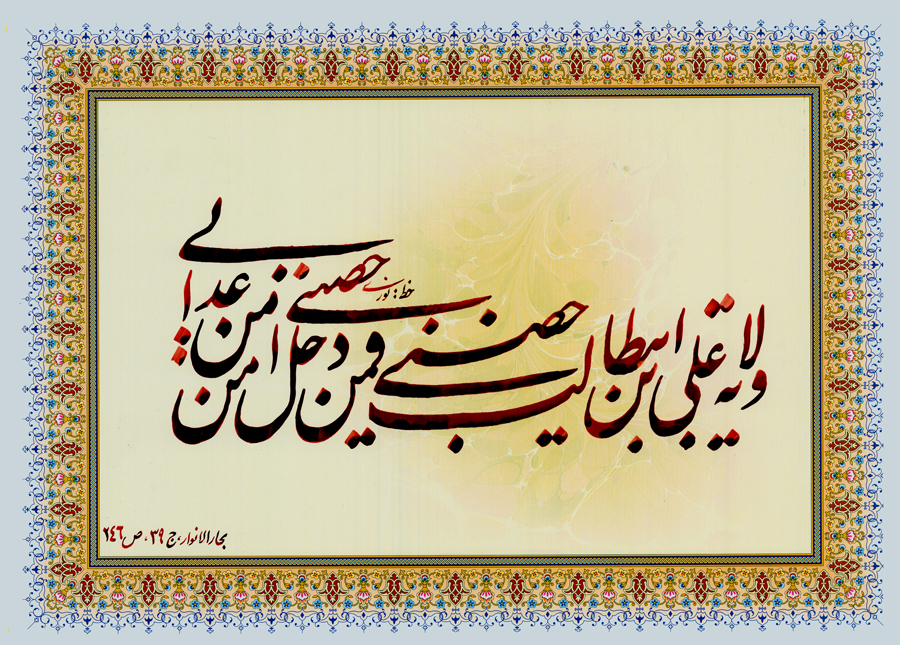 ولاية علي ابن ابيطالب حصني
فمن دخل حصني
امن من عذابي
خط: نوری
بحارالانوار، ج ٣٩، ص ٢٤٦